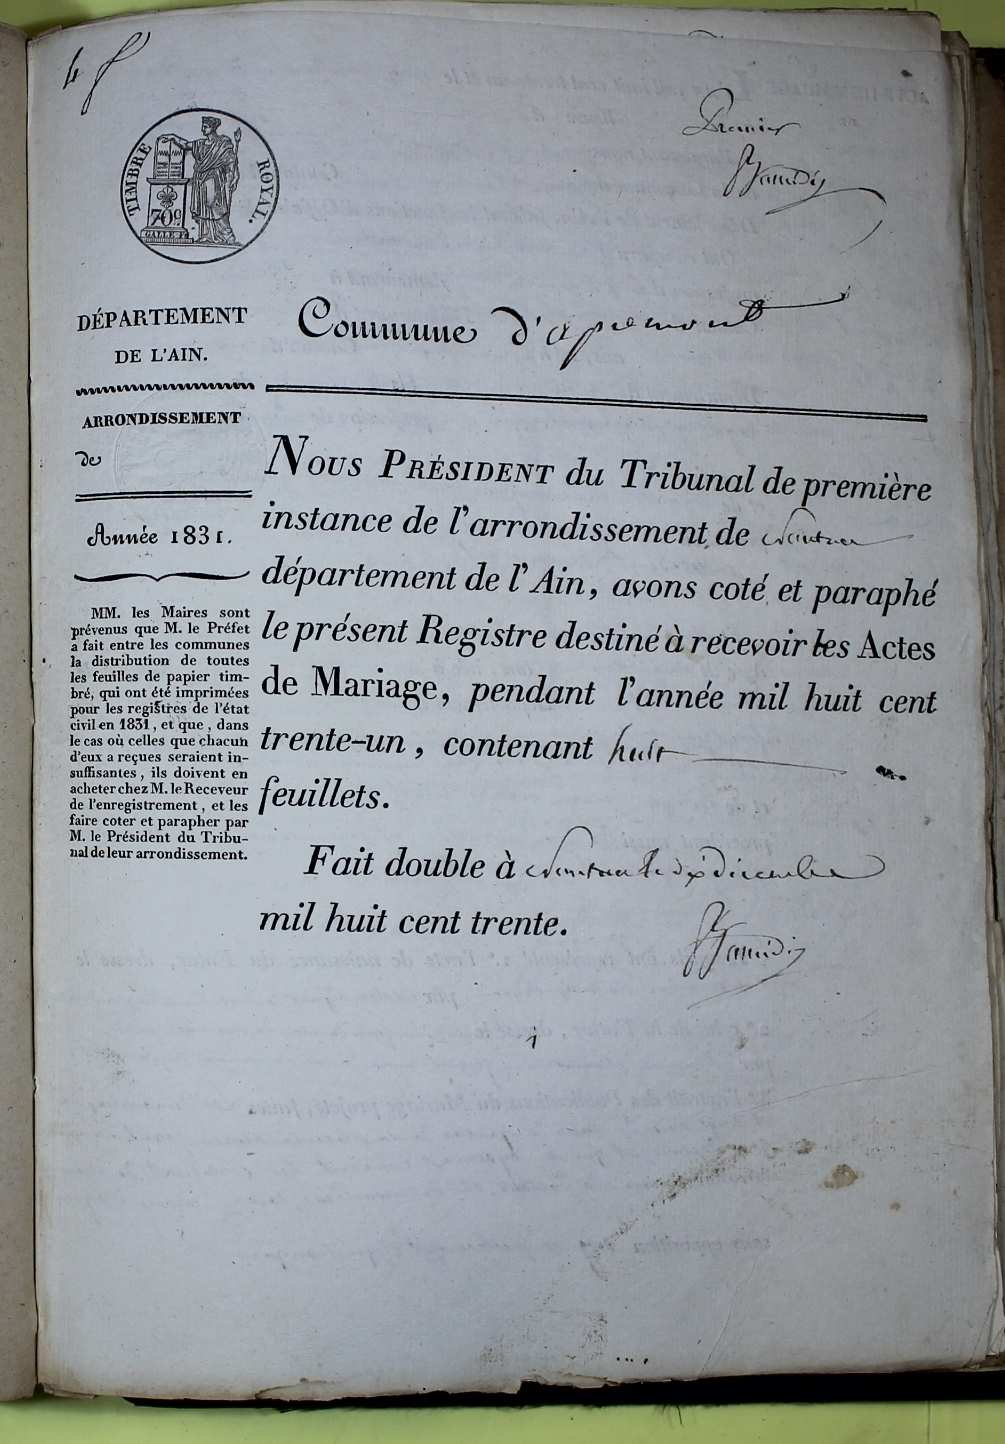 TIMBRE ROYAL.
70 c
Premier
DÉPARTEMENT
DE L'AIN.
Commune d'apremont
ARRONDISSEMENT
de
Année 1831.
MM. les Maires sont
prévenus que M. le Préfet
a fait entre les communes
la distribution de toutes
les feuilles de papier tim-
bré, qui ont été imprimées
pour les registres de l'état
civil en 1831, et que, dans
le cas où celles que chacun
d'eux a reçues seraient in-
suffisantes, ils doivent en
acheter chez M. le Receveur
de l'enregistrement, et les
faire coter et parapher par
M. le Président du Tribu-
nal de leur arrondissement.
NOUS PRÉSIDENT du Tribunal de première
instance de l'arrondissement de Nantua
département de l'Ain, avons coté et paraphé
le présent Registre destiné à recevoir les Actes
de Mariage, pendant l'année mil huit cent
trente-un, contenant huit
feuillets.
Fait double à Nantua le dix décembre
mil huit cent trente.